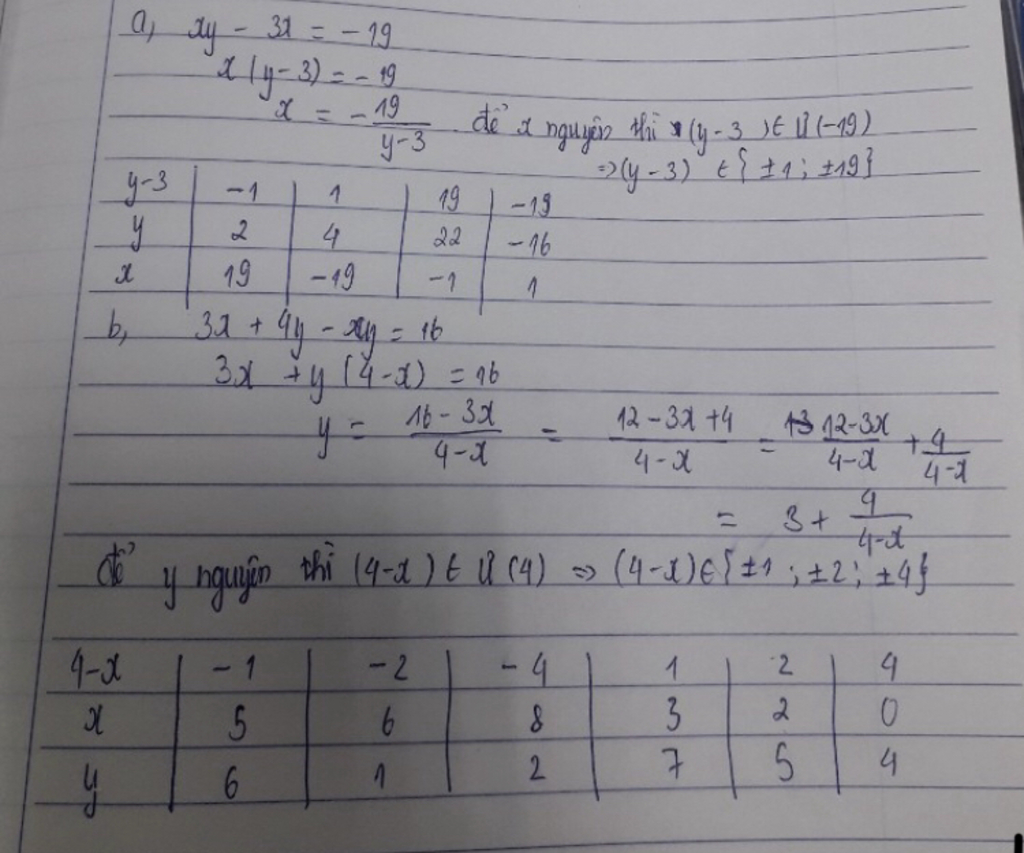 a, xy - 3x = -19
x(y-3) = -19
x = - 19/(y-3) để x nguyên thì (y-3) ∈ Ư(-19)
=> (y-3) ∈ {±1; ±19}
y-3 | -1 | 1 | 19 | -19
y | 2 | 4 | 22 | -16
x | 19 | -19 | -1 | 1
b, 3x + 4y - xy = 16
3x + y (4-x) = 16
y = (16-3x)/(4-x) = (12-3x+4)/(4-x) = (12-3x)/(4-x) + 4/(4-x)
= 3 + 4/(4-x)
để y nguyên thì (4-x) ∈ Ư(4) => (4-x) ∈ {±1; ±2; ±4}
4-x | -1 | -2 | -4 | 1 | 2 | 4
x | 5 | 6 | 8 | 3 | 2 | 0
y | 6 | 1 | 2 | 7 | 5 | 4